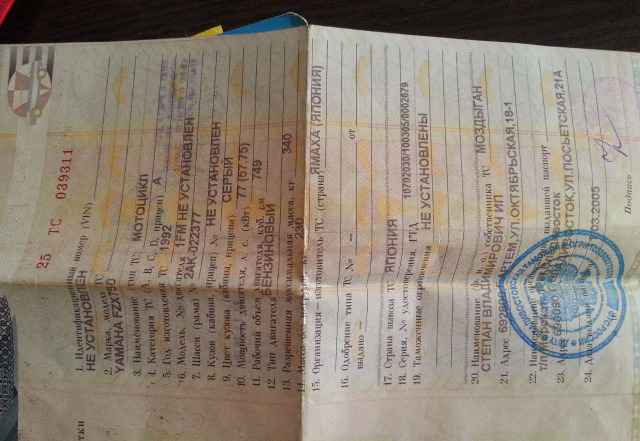 25 ТС 039311
1. Идентификационный номер (VIN)
НЕ УСТАНОВЛЕН
2. Марка, модель ТС
YAMAHA FZX750
3. Наименование (тип ТС) МОТОЦИКЛ
4. Категория ТС (А, В, С, D, прицеп) А
5. Год изготовления ТС 1992
6. Модель, № двигателя 1FM НЕ УСТАНОВЛЕН
7. Шасси (рама) № 2AK-022377
8. Кузов (кабина, прицеп) № НЕ УСТАНОВЛЕН
9. Цвет кузова (кабины, прицепа) СЕРЫЙ
10. Мощность двигателя, л. с. (кВт) 77 (57.75)
11. Рабочий объем двигателя, куб. см 749
12. Тип двигателя БЕНЗИНОВЫЙ
13. Разрешенная максимальная масса, кг 340
14. Масса 230
15. Организация—изготовитель ТС (страна) ЯМАХА (ЯПОНИЯ)
16. Одобрение типа ТС № – от
выдано –
17. Страна вывоза ТС ЯПОНИЯ
18. Серия, № ГТД 10702030/100305/0002679
19. Таможенные ограничения НЕ УСТАНОВЛЕНЫ
20. Наименование собственника ТС МОЗДЫГАН
СТЕПАН ВЛАДИМИРОВИЧ ИП
21. Адрес АРТЕМ,УЛ.ОКТЯБРЬСКАЯ,18-1
22. выдавшей паспорт
23. УЛ.ПОСЬЕТСКАЯ,21А
24. .03.2005
Подпись